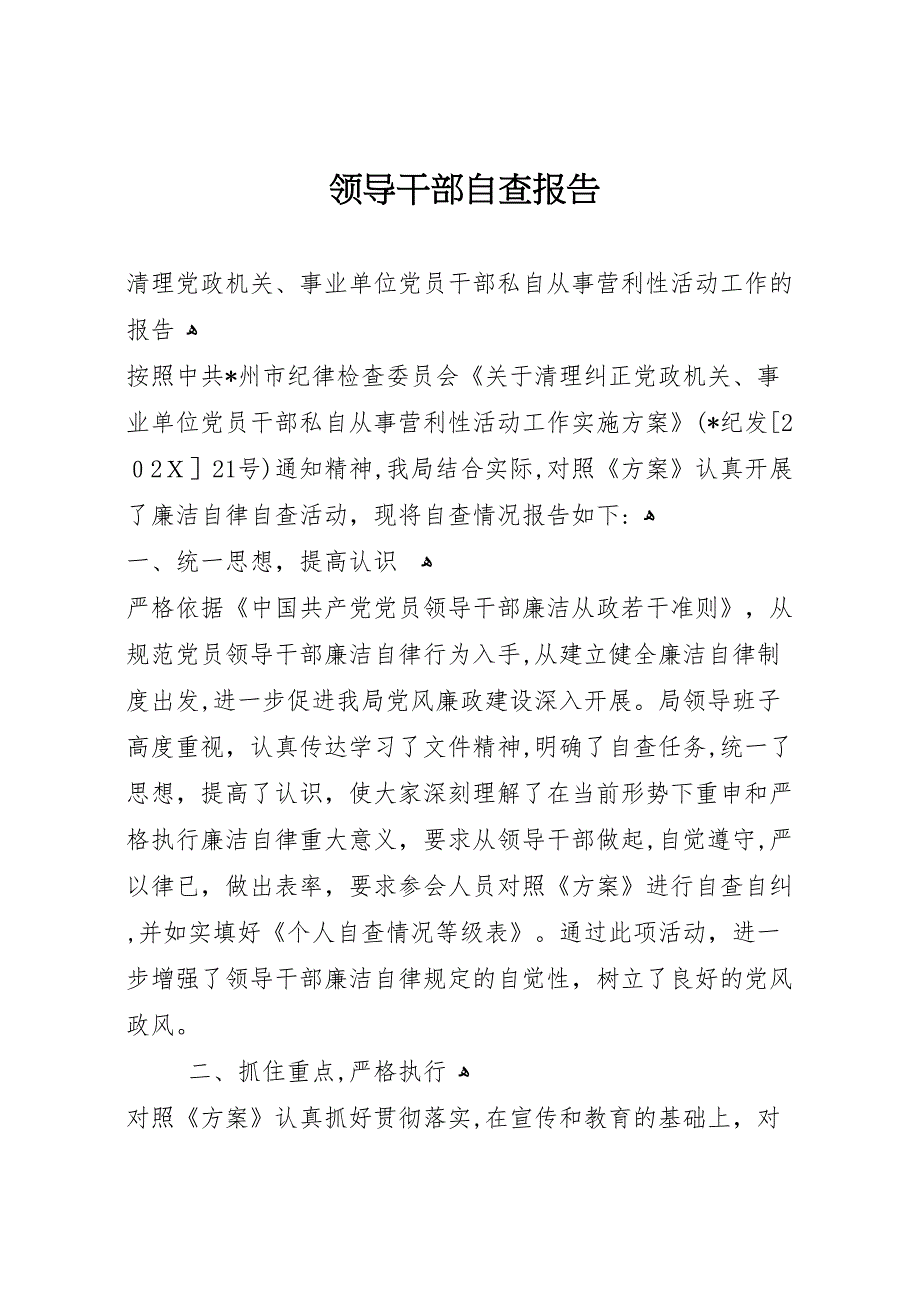 领导干部自查报告
清理党政机关、事业单位党员干部私自从事营利性活动工作的
报告 ﻫ
按照中共*州市纪律检查委员会《关于清理纠正党政机关、事
业单位党员干部私自从事营利性活动工作实施方案》(*纪发[2
０２Ｘ］21号)通知精神,我局结合实际,对照《方案》认真开展
了廉洁自律自查活动，现将自查情况报告如下: ﻫ
一、统一思想，提高认识 ﻫ
严格依据《中国共产党党员领导干部廉洁从政若干准则》，从
规范党员领导干部廉洁自律行为入手,从建立健全廉洁自律制
度出发,进一步促进我局党风廉政建设深入开展。局领导班子
高度重视，认真传达学习了文件精神,明确了自查任务,统一了
思想，提高了认识，使大家深刻理解了在当前形势下重申和严
格执行廉洁自律重大意义，要求从领导干部做起,自觉遵守,严
以律已，做出表率，要求参会人员对照《方案》进行自查自纠
,并如实填好《个人自查情况等级表》。通过此项活动，进一
步增强了领导干部廉洁自律规定的自觉性，树立了良好的党风
政风。
二、抓住重点,严格执行 ﻫ
对照《方案》认真抓好贯彻落实,在宣传和教育的基础上，对